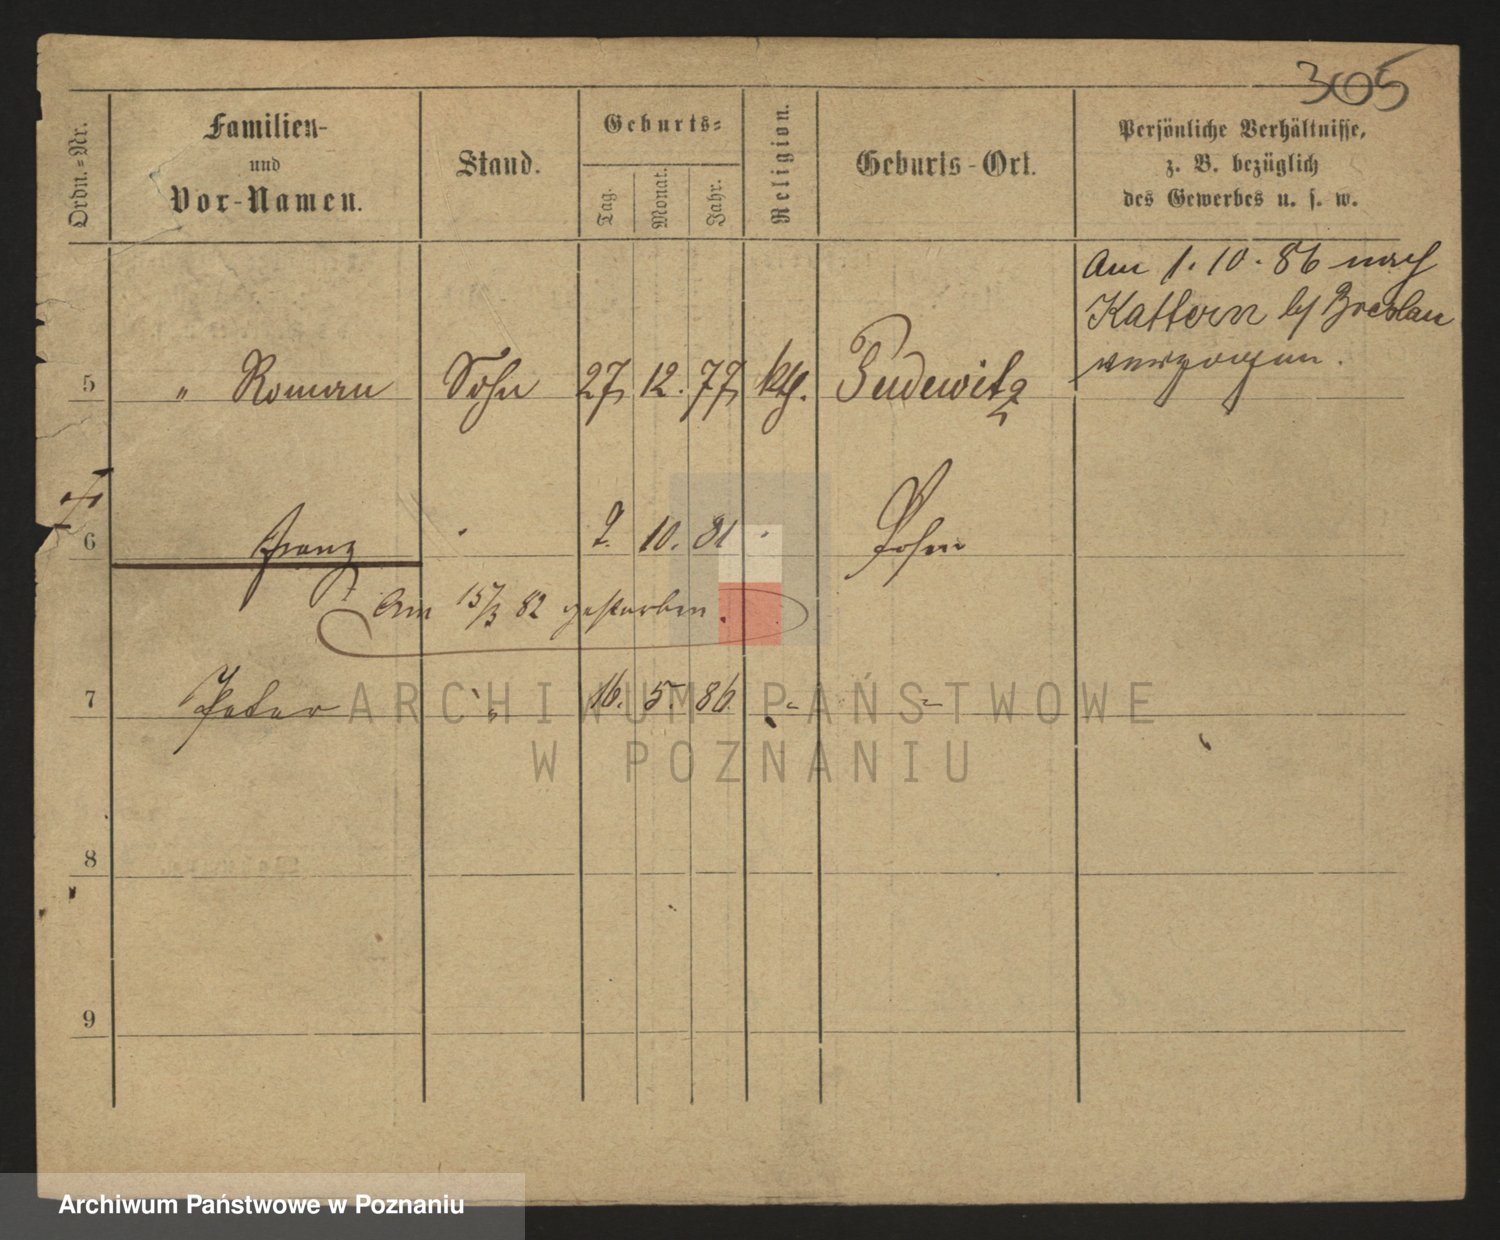 305
Ordn.-Nr.
Familien-
und
Vor-Namen.
Stand.
Geburts-
Tag.
Monat.
Jahr.
Religion.
Geburts-Ort.
Persönliche Verhältnisse,
z. B. bezüglich
des Gewerbes u. s. w.
Am 1. 10. 86 nach
Kattern b/ Breslau
verzogen.
5 " Roman Sohn 27 12. 77 kth. Pudewitz
6 Franz 2. 10. 81 Posen
Am 15/3 82 gestorben.
7 Peter " 16. 5. 86 " "
ARCHIWUM PAŃSTWOWE
W POZNANIU
8
9
Archiwum Państwowe w Poznaniu